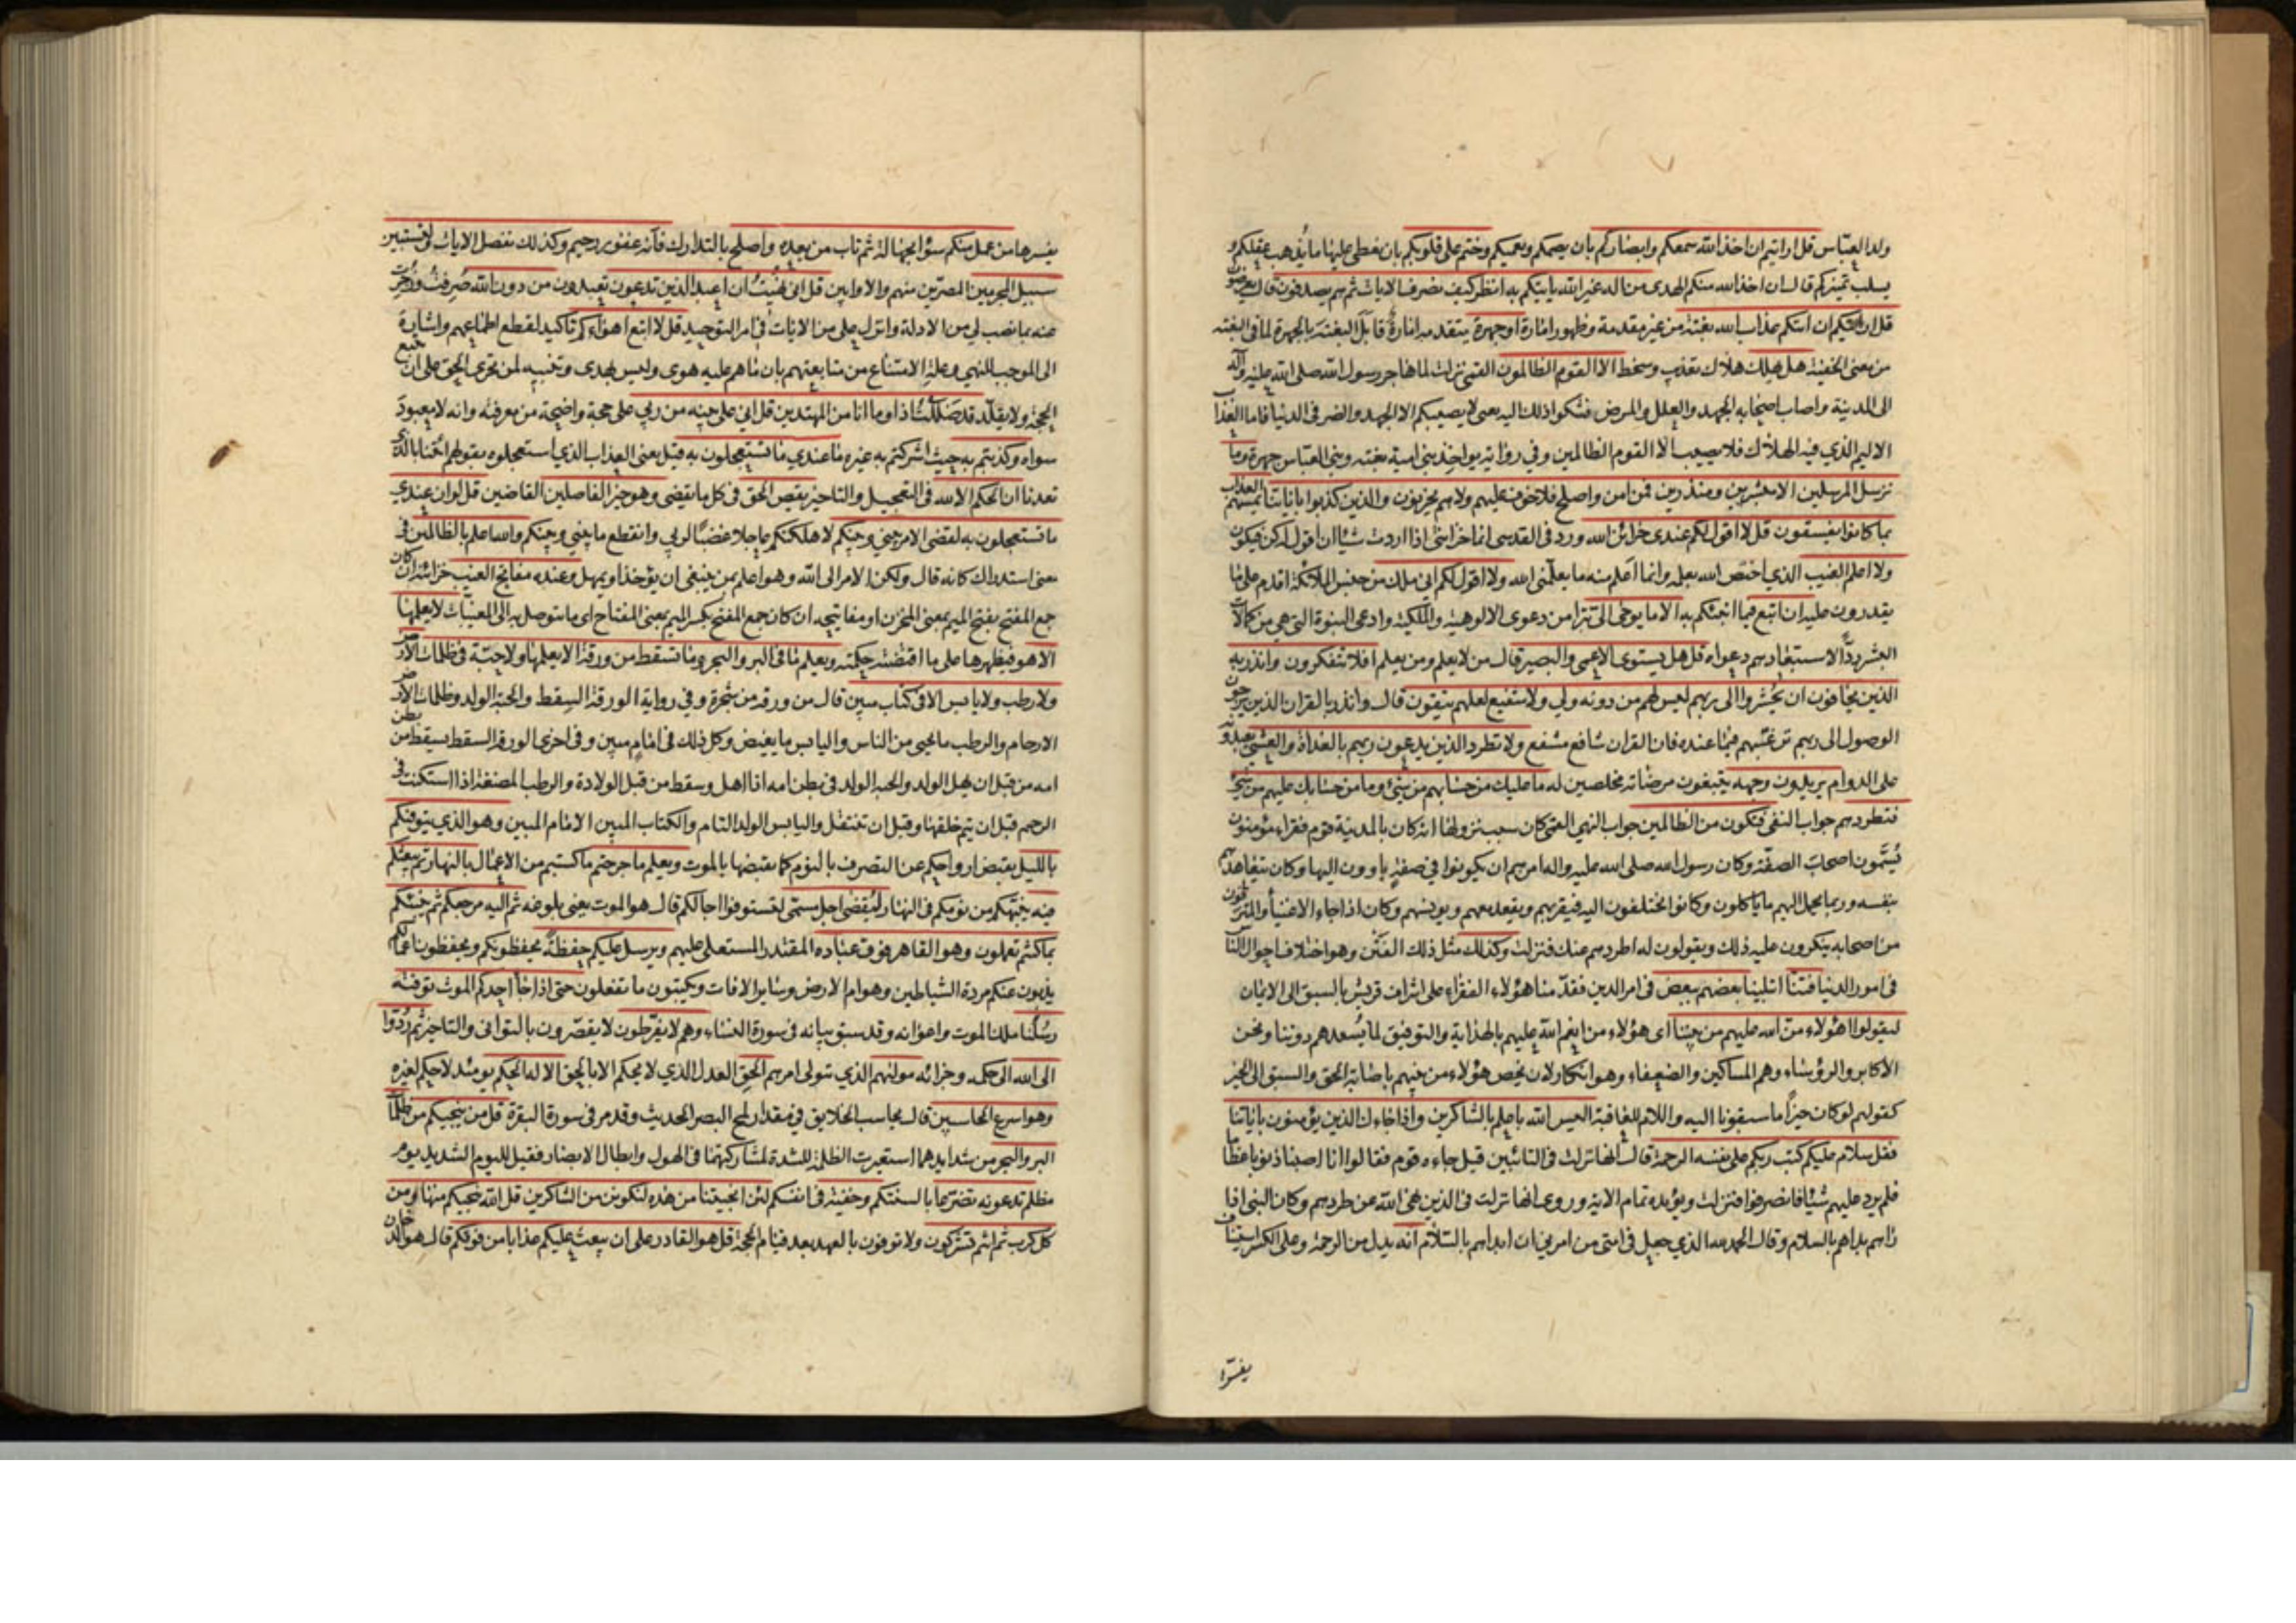 ولد العباس قل ارايتم ان اخذ الله سمعكم وابصاركم بان يصمكم ويعميكم وختم على قلوبكم بان يغطى عليها ما يذهب عقلكم و
يسلب تميزكم قال ان اخذ الله منكم الهدى من اله غير الله ياتيكم به انظر كيف نصرف الايات ثم هم يصدفون قال يعرضون
قل ارايتكم ان اتيكم عذاب الله بغتة من غير مقدمة وظهور امارة او جهرة يتقدمه امارة قابل البغتة بالجهرة لما فى البغتة
من معنى الخفية هل يهلك هلاك تعذيب وسخط الا القوم الظالمون القمى نزلت لما هاجر رسول الله صلى الله عليه واله
الى المدينة واصاب اصحابه الجهد والعلل والمرض فشكوا ذلك اليه يعنى لا يصيبكم الا الجهد والضر فى الدنيا فاما العذاب
الاليم الذي فيه الهلاك فلا يصيب الا القوم الظالمين وفي رواية يواخذ بني امية بغتة وبني العباس جهرة وما
نرسل المرسلين الا مبشرين ومنذرين فمن امن واصلح فلا خوف عليهم ولا هم يحزنون والذين كذبوا باياتنا يمسهم العذاب
بما كانوا يفسقون قل لا اقول لكم عندى خزائن الله ورد فى القدسى انما خزائنى اذا اردت شيئا ان اقول له كن فيكون
ولا اعلم الغيب الذي اختص الله بعلمه وانما اعلم منه ما يعلمنى الله ولا اقول لكم اني ملك من جنس الملائكة اقدم على ما
يقدرون عليه ان اتبع فيما انبئكم به الا ما يوحى الى تبرا من دعوى الالوهية والملكية وادعى النبوة التي هي من كمالات
البشر ردا لاستبعادهم دعواه قل هل يستوى الاعمى والبصير قال من لا يعلم ومن يعلم افلا تتفكرون وانذر به
الذين يخافون ان يحشروا الى ربهم ليس لهم من دونه ولي ولا شفيع لعلهم يتقون قال وانذر بالقران الذين يرجون
الوصول الى ربهم ترغبهم فيما عنده فان القران شافع مشفع ولا تطرد الذين يدعون ربهم بالغداة والعشي يعبدونه
على الدوام يريدون وجهه يتبغون مرضاته مخلصين له ما عليك من حسابهم من شئ وما من حسابك عليهم من شئ
فتطردهم جواب النفى فتكون من الظالمين جواب النهي القمى كان سبب نزولها انه كان بالمدينة قوم فقراء مؤمنون
يسمون اصحاب الصفة وكان رسول الله صلى الله عليه واله امرهم ان يكونوا في صفة ياوون اليها وكان يتعاهدهم
بنفسه وربما يحمل اليهم ما ياكلون وكانوا يختلفون اليه فيقربهم ويقعد معهم ويونسهم وكان اذا جاء الاغنياء والمترفون
من اصحابه ينكرون عليه ذلك ويقولون له اطردهم عنك فنزلت وكذلك مثل ذلك الفتن وهو اختلاف احوال الناس
فى امور الدنيا فتنا ابتلينا بعضهم ببعض فى امر الدين فقدمنا هؤلاء الفقراء على اشراف قريش بالسبق الى الايمان
ليقولوا اهؤلاء من الله عليهم من بيننا اى هؤلاء من انعم الله عليهم بالهداية والتوفيق لما يسعدهم دوننا ونحن
الاكابر والرؤساء وهم المساكين والضعفاء وهو انكار لان يخص هؤلاء من بينهم باصابة الحق والسبق الى الخير
كقولهم لو كان خيرا ما سبقونا اليه واللام للعاقبة اليس الله باعلم بالشاكرين واذا جاءك الذين يؤمنون باياتنا
فقل سلام عليكم كتب ربكم على نفسه الرحمة قال انها نزلت فى التائبين قيل جاءه قوم فقالوا انا اصبنا ذنوبا عظاما
فلم يرد عليهم شيئا فانصرفوا فنزلت ويؤيده تمام الاية وروى انها نزلت فى الذين نهى الله عن طردهم وكان النبى اذا
راهم بداهم بالسلام وقال الحمد لله الذي جعل فى امتى من امرني ان ابداهم بالسلام انه بدل من الرحمة وعلى الكسر استيناف
يفسرها
يفسرها من عمل منكم سوا بجهالة ثم تاب من بعده واصلح بالتدارك فانه غفور رحيم وكذلك نفصل الايات ولتستبين
سبيل المجرمين المصرين منهم والاوابين قل انى نهيت ان اعبد الذين تدعون تعبدون من دون الله صرفت وزجرت
عنه بما نصب لي من الادلة وانزل على من الايات في امر التوحيد قل لا اتبع اهواءكم تاكيد لقطع اطماعهم واشارة
الى الموجب للنهي وعلة الامتناع من متابعتهم بان ما هم عليه هوى وليس بهدى وتنبيه لمن تحرى الحق على ان يتبع
الحجة ولا يقلد قد ضللت اذا وما انا من المهتدين قل اني على بينة من ربي على حجة واضحة من معرفته وانه لا معبود
سواه وكذبتم به حيث اشركتم به غيره ما عندي ما تستعجلون به قيل يعنى العذاب الذي استعجلوه بقولهم ائتنا بالذى
تعدنا ان الحكم الا لله فى التعجيل والتاخير يقص الحق فى كل ما يقضى وهو خير الفاصلين القاضين قل لو ان عندي
ما تستعجلون به لقضى الامر بيني وبينكم لاهلكتكم عاجلا غضبا لربي وانقطع ما بيني وبينكم والله اعلم بالظالمين فى
معنى استدراك كانه قال ولكن الامر الى الله وهو اعلم بمن ينبغى ان يؤخذ او يمهل وعنده مفاتح الغيب خزائنه ان كان
جمع المفتح بفتح الميم بمعنى المخزن او مفاتيحه ان كان جمع المفتح بكسر الميم بمعنى المفتاح اى ما يتوصل به الى المغيبات لا يعلمها
الا هو فيظهرها على ما اقتضته حكمته ويعلم ما فى البر والبحر وما تسقط من ورقة الا يعلمها ولا حبة في ظلمات الارض
ولا رطب ولا يابس الا فى كتاب مبين قال من ورقة من شجرة وفي رواية الورقة السقط والحبة الولد وظلمات الارض
الارحام والرطب ما يحيى من الناس واليابس ما يغيض وكل ذلك فى امام مبين وفى اخرى الورقة السقط يسقط من بطن
امه من قبل ان يهل الولد والحبة الولد فى بطن امه اذا اهل وسقط من قبل الولادة والرطب المضغة اذا استكنت فى
الرحم قبل ان يتم خلقها وقبل ان تنتقل واليابس الولد التام والكتاب المبين الامام المبين وهو الذي يتوفيكم
بالليل يقبض ارواحكم عن التصرف بالنوم كما يقبضها بالموت ويعلم ما جرحتم ما كسبتم من الاعمال بالنهار ثم يبعثكم
فيه ينبهكم من نومكم فى النهار ليقضى اجل مسمى لتستوفوا اجالكم قال هو الموت يعنى بلوغه ثم اليه مرجعكم ثم ينبئكم
بما كنتم تعملون وهو القاهر فوق عباده المقتدر المستعلى عليهم ويرسل عليكم حفظة يحفظونكم ويحفظون اعمالكم
يذبون عنكم مردة الشياطين وهوام الارض وساير الافات ويكتبون ما تفعلون حتى اذا جاء احدكم الموت توفته
رسلنا ملك الموت واعوانه وقد سبق بيانه فى سورة النساء وهم لا يفرطون لا يقصرون بالتوانى والتاخير ثم ردوا
الى الله الى حكمه وجزائه موليهم الذي يتولى امرهم الحق العدل الذي لا يحكم الا بالحق الا له الحكم يومئذ لا حكم لغيره
وهو اسرع الحاسبين قال يحاسب الخلايق في مقدار لمح البصر الحديث وقد مر فى سورة البقرة قل من ينجيكم من ظلمات
البر والبحر من شدايدهما استعيرت الظلمة للشدة لمشاركتهما فى الهول وابطال الابصار فقيل لليوم الشديد يوم
مظلم تدعونه تضرعا بالسنتكم وخفية فى انفسكم لئن انجيتنا من هذه لنكونن من الشاكرين قل الله ينجيكم منها ومن
كل كرب ثم انتم تشركون ولا توفون بالعهد بعد قيام الحجة قل هو القادر على ان يبعث عليكم عذابا من فوقكم قال هو الدخان